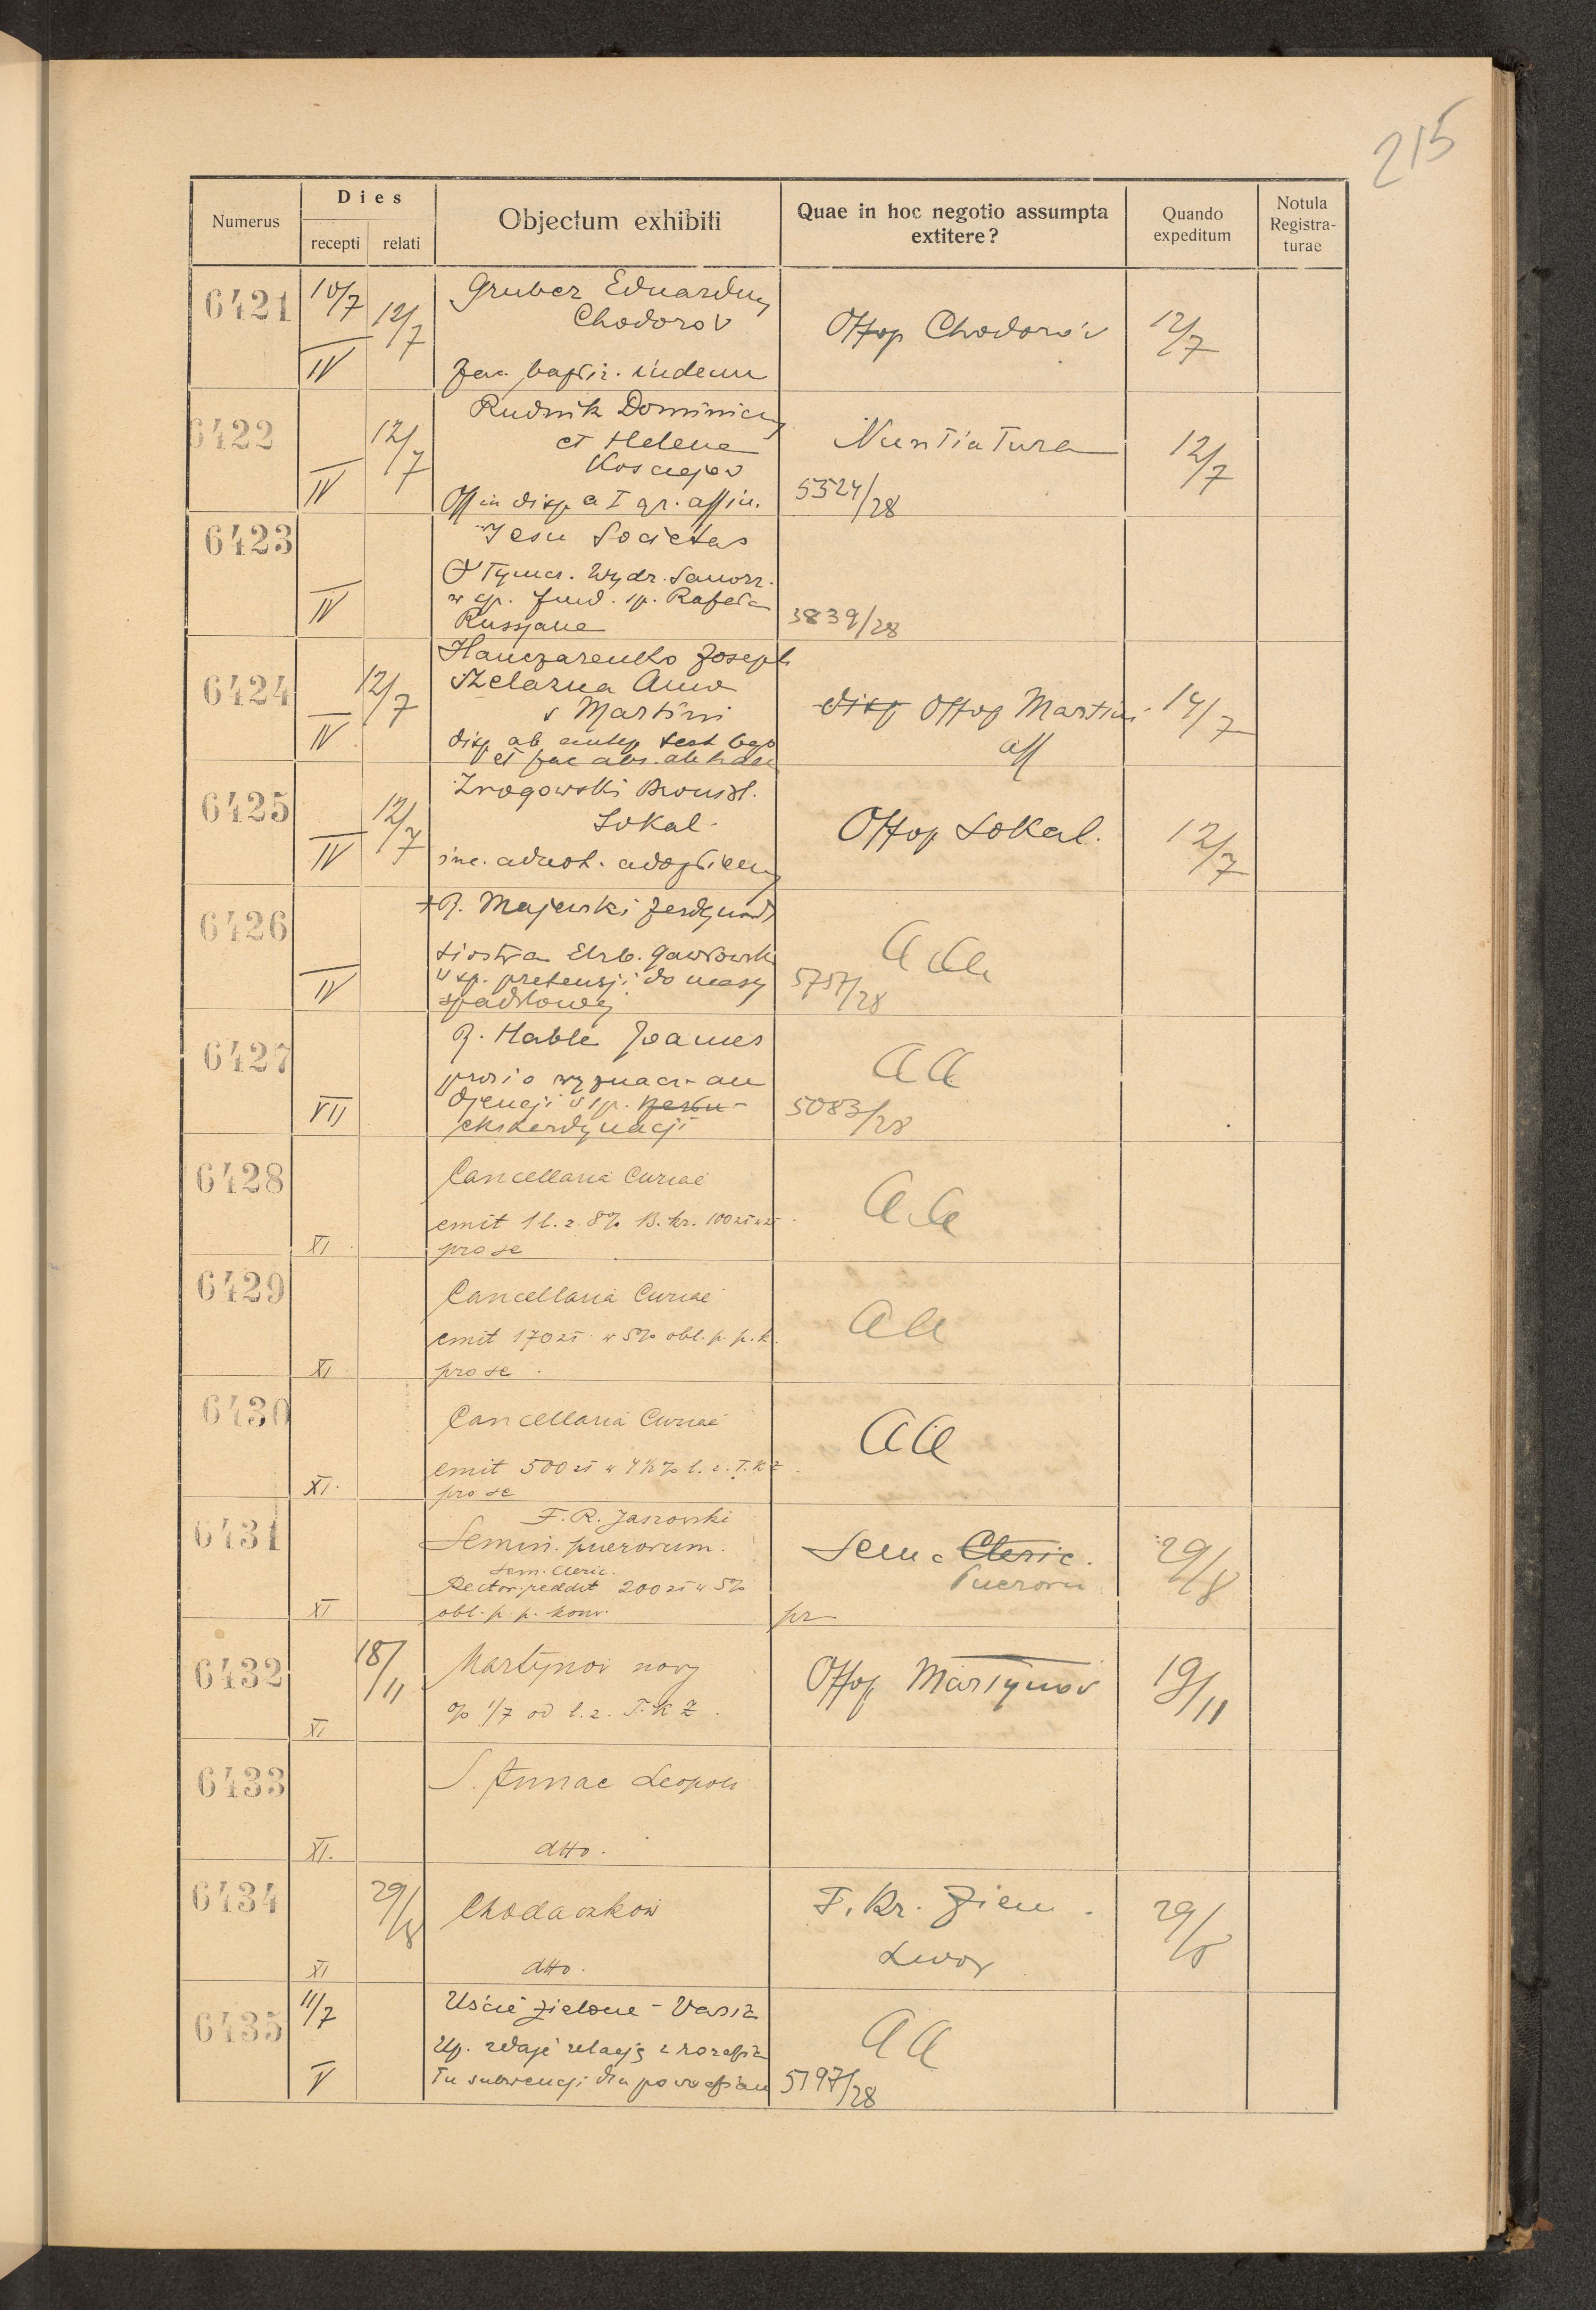 215
Numerus
Dies
recepti
relati
Objectum exhibiti
Quae in hoc negotio assumpta
extitere?
Quando
expeditum
Notula
Registra-
turae
6421
10/7
12/7
IV
Gruber Eduardus
Chodorov
fac. baptiz. eindem
Chodorów
12/7
6422
12/7
IV
Rudnik Dominicus
et Helena
Off in disp a I gr. affin.
Nuntiatura
5524/28
12/7
6423
IV
Jesu Societas
Tymcz. Wydz. Samorz.
w sp. fund. sp. Rafała
Russjana
3839/28
6424
12/7
IV
Hanczarenko Joseph
Żelazna Anna
v Martini
disp ab
disp Martini
14/7
6425
12/7
IV
Bronisł.
Sokal
adnot.
Sokal.
12/7
6426
IV
+ R. Majewski Ferdynand
siostra Elżb.
w sp. pretensji do masy
spadkowej
aa
5757/28
6427
VII
R. Hable Joannes
prosi o wyznacz. au
djencji w sp.
ekskardynacji
aa
5083/28
6428
XI
Cancellaria Curiae
emit 1 l. z. 8% B. kr. 100 zł w zł
pro se
aa
6429
XI
Cancellaria Curiae
emit 170 zł w 5% obl. p. p. k.
pro se
aa
6430
XI.
Cancellaria Curiae
emit 500 zł w 4½% l. z. T.K.Z.
pro se
aa
6431
XI
F. R. Jaszowski
Semin. puerorum.
Sem. Cleric.
Rector reddit 200 zł w 5%
obl. p. p. konw.
Sem. Cleric.
Pueroru
pr
29/8
6432
18/11
XI
Martynow nowy
% 1/7 od l. z. T. K Z.
Martynów
19/11
6433
XI.
S. Annae Leopoli
dtto.
6434
29/8
XI
Chodaczkow
dtto.
T. Kr. Ziem.
Lwow
29/8
6435
11/7
V
Uście zielone - Vasiz
Up. zdaje relację z
tu subwencji dla
aa
5197/28